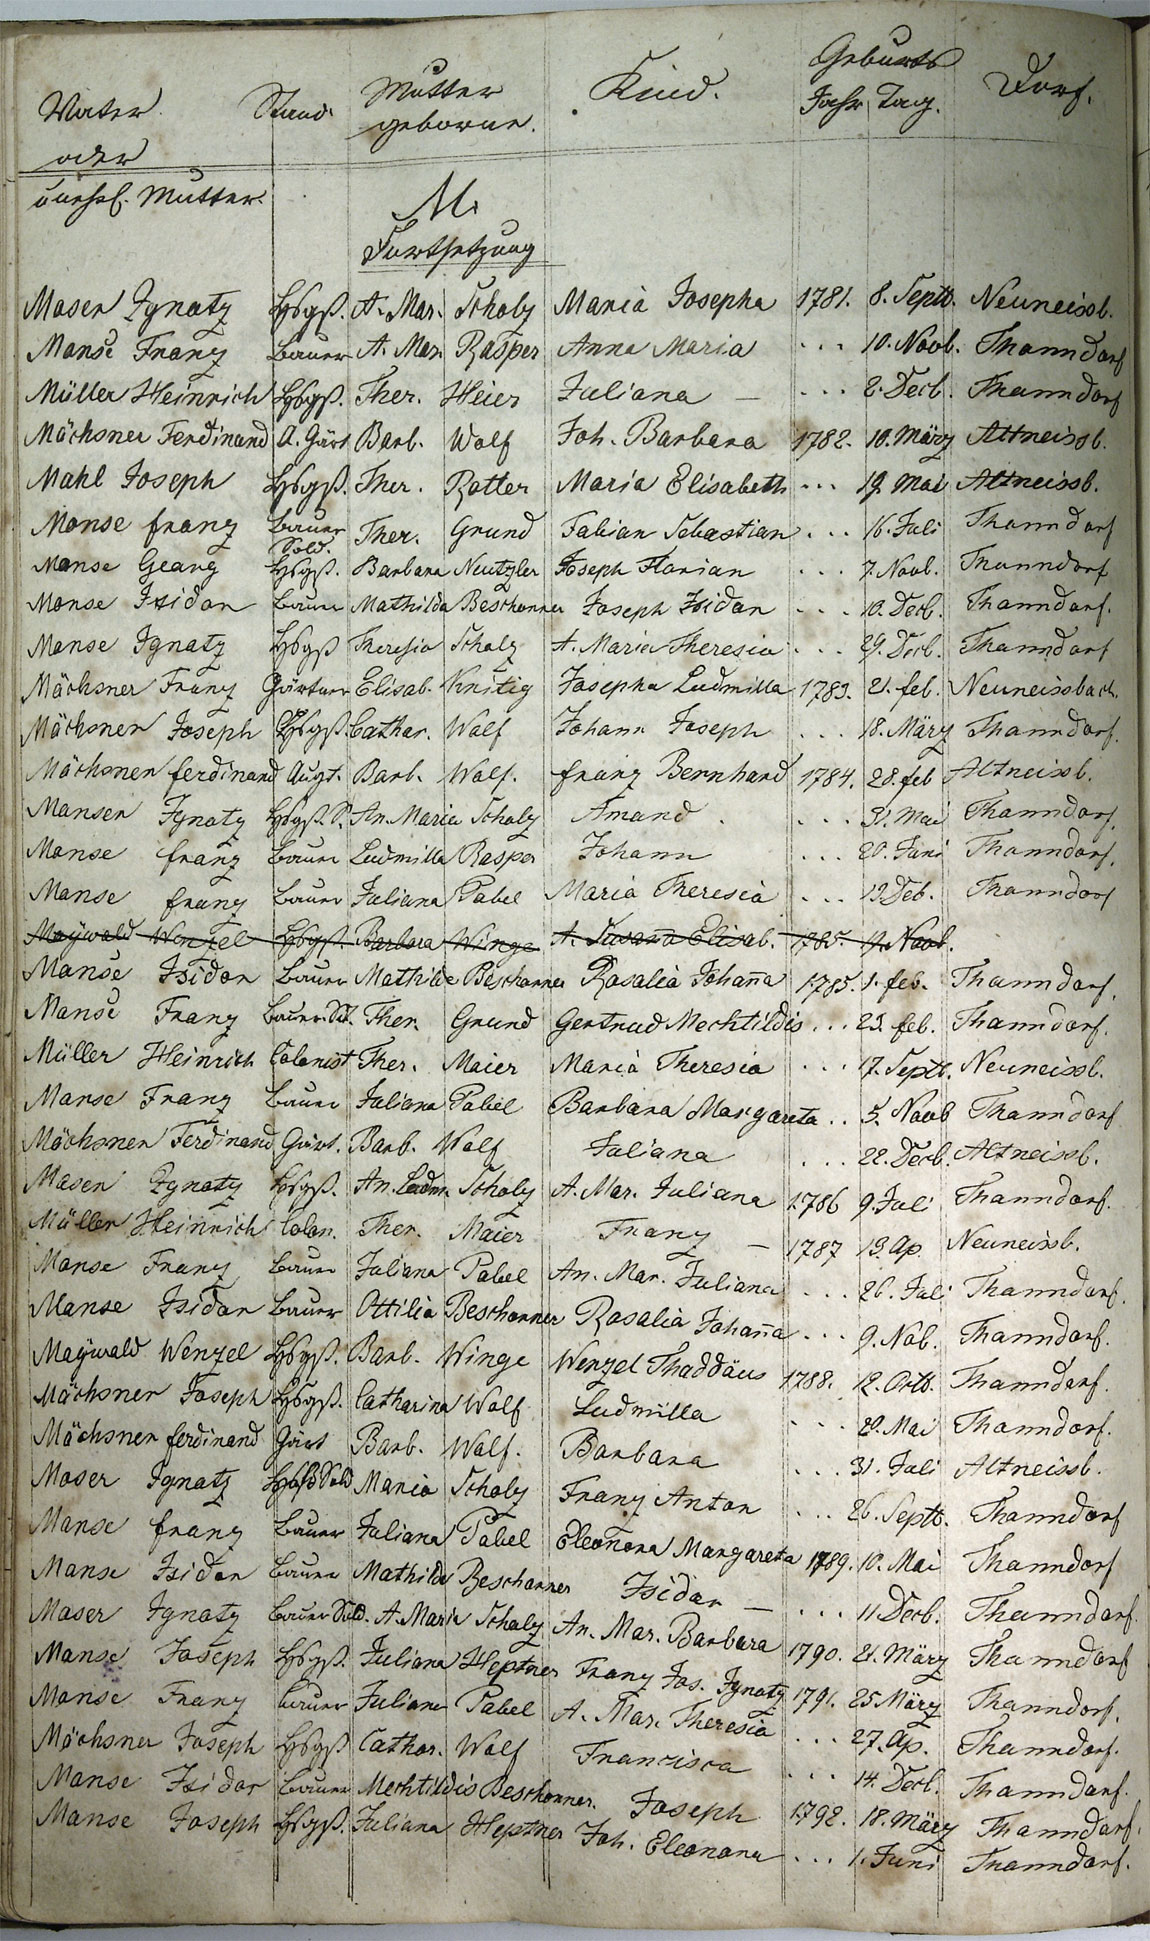 Vater Stand. Mutter geborne. Kind. Geburts Jahr Tag. Dorf.
oder
unehl. Mutter.
M.
Fortsetzung
Moser Ignatz Hsgß. A. Mar. Scholz Maria Josepha 1781. 8. Septb. Neuneissb.
Monse Franz Bauer A. Mar. Rasper Anna Maria ... 10. Novb. Thanndorf
Müller Heinrich Hsgß. Ther. Heier Juliana — ... 2. Decb. Thanndorf
Möchsner Ferdinand A. Gärt Barb. Wolf Joh. Barbara 1782. 10. März Altneissb.
Mahl Joseph Hsgß. Ther. Rotter Maria Elisabeth ... 19. Mai Altneissb.
Monse franz Bauer Sold. Ther. Grund Fabian Sebastian ... 16. Juli Thanndorf
Monse Georg Hsgß. Barbara Neutzler Joseph Florian ... 7. Novb. Thanndorf
Monse Isidor Bauer Mathilda Beschorner Joseph Isidor ... 10. Decb. Thanndorf.
Monse Ignatz Hsgß Theresia Scholz A. Maria Theresia ... 29. Decb. Thanndorf
Möchsner Franz Gärtner Elisab. Knittig Josepha Ludmilla 1783. 21. feb. Neuneissbach.
Möchsner Joseph Hsgß. Cathar. Wolf Johann Joseph ... 18. März Thanndorf.
Möchsner ferdinand Augt. Barb. Wolf. franz Bernhard 1784. 28. feb Altneissb.
Manser Ignatz Hsgß. S. An. Maria Scholz Amand . ... 31. Mai Thanndorf.
Monse franz Bauer Ludmilla Rasper Johann ... 20. Juni Thanndorf.
Manse franz Bauer Juliana Pabel Maria Theresia ... 13. Deb. Thanndorf
Maÿwald Wenzel Hsgß. Barbara Winge A. Susaña Elisab. 1785. 19. Novb.
Manse Isidor Bauer Mathilde Beschorner Rosalia Johaña 1785. 1. feb. Thanndorf.
Manse Franz Bauer Sol. Ther. Grund Gertrud Mechtildis ... 23. feb. Thanndorf.
Müller Heinrich Colonist Ther. Maier Maria Theresia ... 17. Septb. Neuneissb.
Manse Franz Bauer Juliana Pabel Barbara Margareta .. 5. Novb Thanndorf
Möchsner Ferdinand Gärt. Barb. Wolf Juliana ... 22. Decb. Altneissb.
Moser Ignatz Hsgß. An. Ludm. Scholz A. Mar. Juliana 1786 9. Juli Thanndorf.
Müller Heinrich Colon. Ther. Maier Franz — 1787 13. Ap. Neuneissb.
Manse Franz Bauer Juliana Pabel An. Mar. Juliana ... 26. Juli Thanndorf.
Manse Isidor Bauer Ottilia Beschorner Rosalia Johaña ... 9. Nob. Thanndorf.
Maÿwald Wenzel Hsgß. Barb. Winge Wenzel Thaddäus 1788. 12. Octb. Thanndorf.
Möchsner Joseph Hsgß. Catharina Wolf Ludmilla ... 28. Mai Thanndorf.
Möchsner ferdinand Gärt Barb. Wolf. Barbara ... 31. Juli Altneissb.
Moser Ignatz Hsgß Sold Maria Scholz Franz Anton ... 26. Septb. Thanndorf
Manse franz Bauer Juliana Pabel Eleonora Margareta 1789. 10. Mai Thanndorf
Manse Isidor Bauer Mathilde Beschorner Isidor — ... 11. Decb. Thanndorf.
Moser Ignatz Bauer Sold. A. Maria Scholz An. Mar. Barbara 1790. 21. März Thanndorf
Manse Joseph Hsgß. Juliana Heptner Franz Jos. Ignatz 1791. 25 März Thanndorf.
Manse Franz Bauer Juliana Pabel A. Mar. Theresia ... 27. Ap. Thanndorf.
Möchsner Joseph Hsgß Cathar. Wolf Francisca ... 14. Decb. Thanndorf.
Manse Isidor Bauer Mechtildis Beschorner. Joseph 1792. 18. März Thanndorf.
Manse Joseph Hsgß. Juliana Heptner Joh. Eleonora ... 1. Juni Thanndorf.